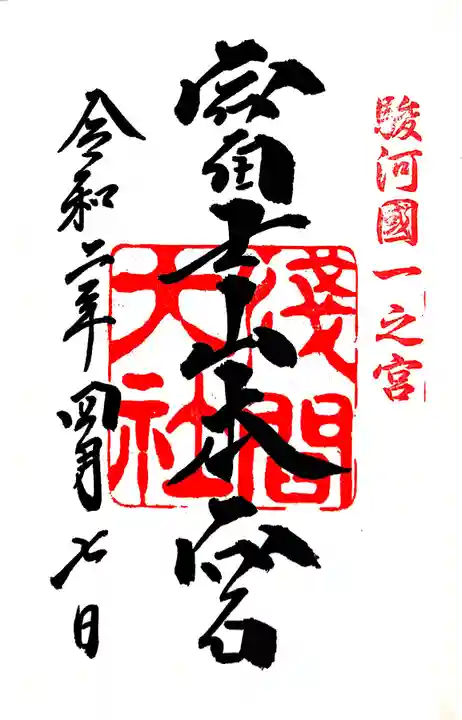 駿河國一之宮
富士山本宮
淺間
大社
令和二年四月七日